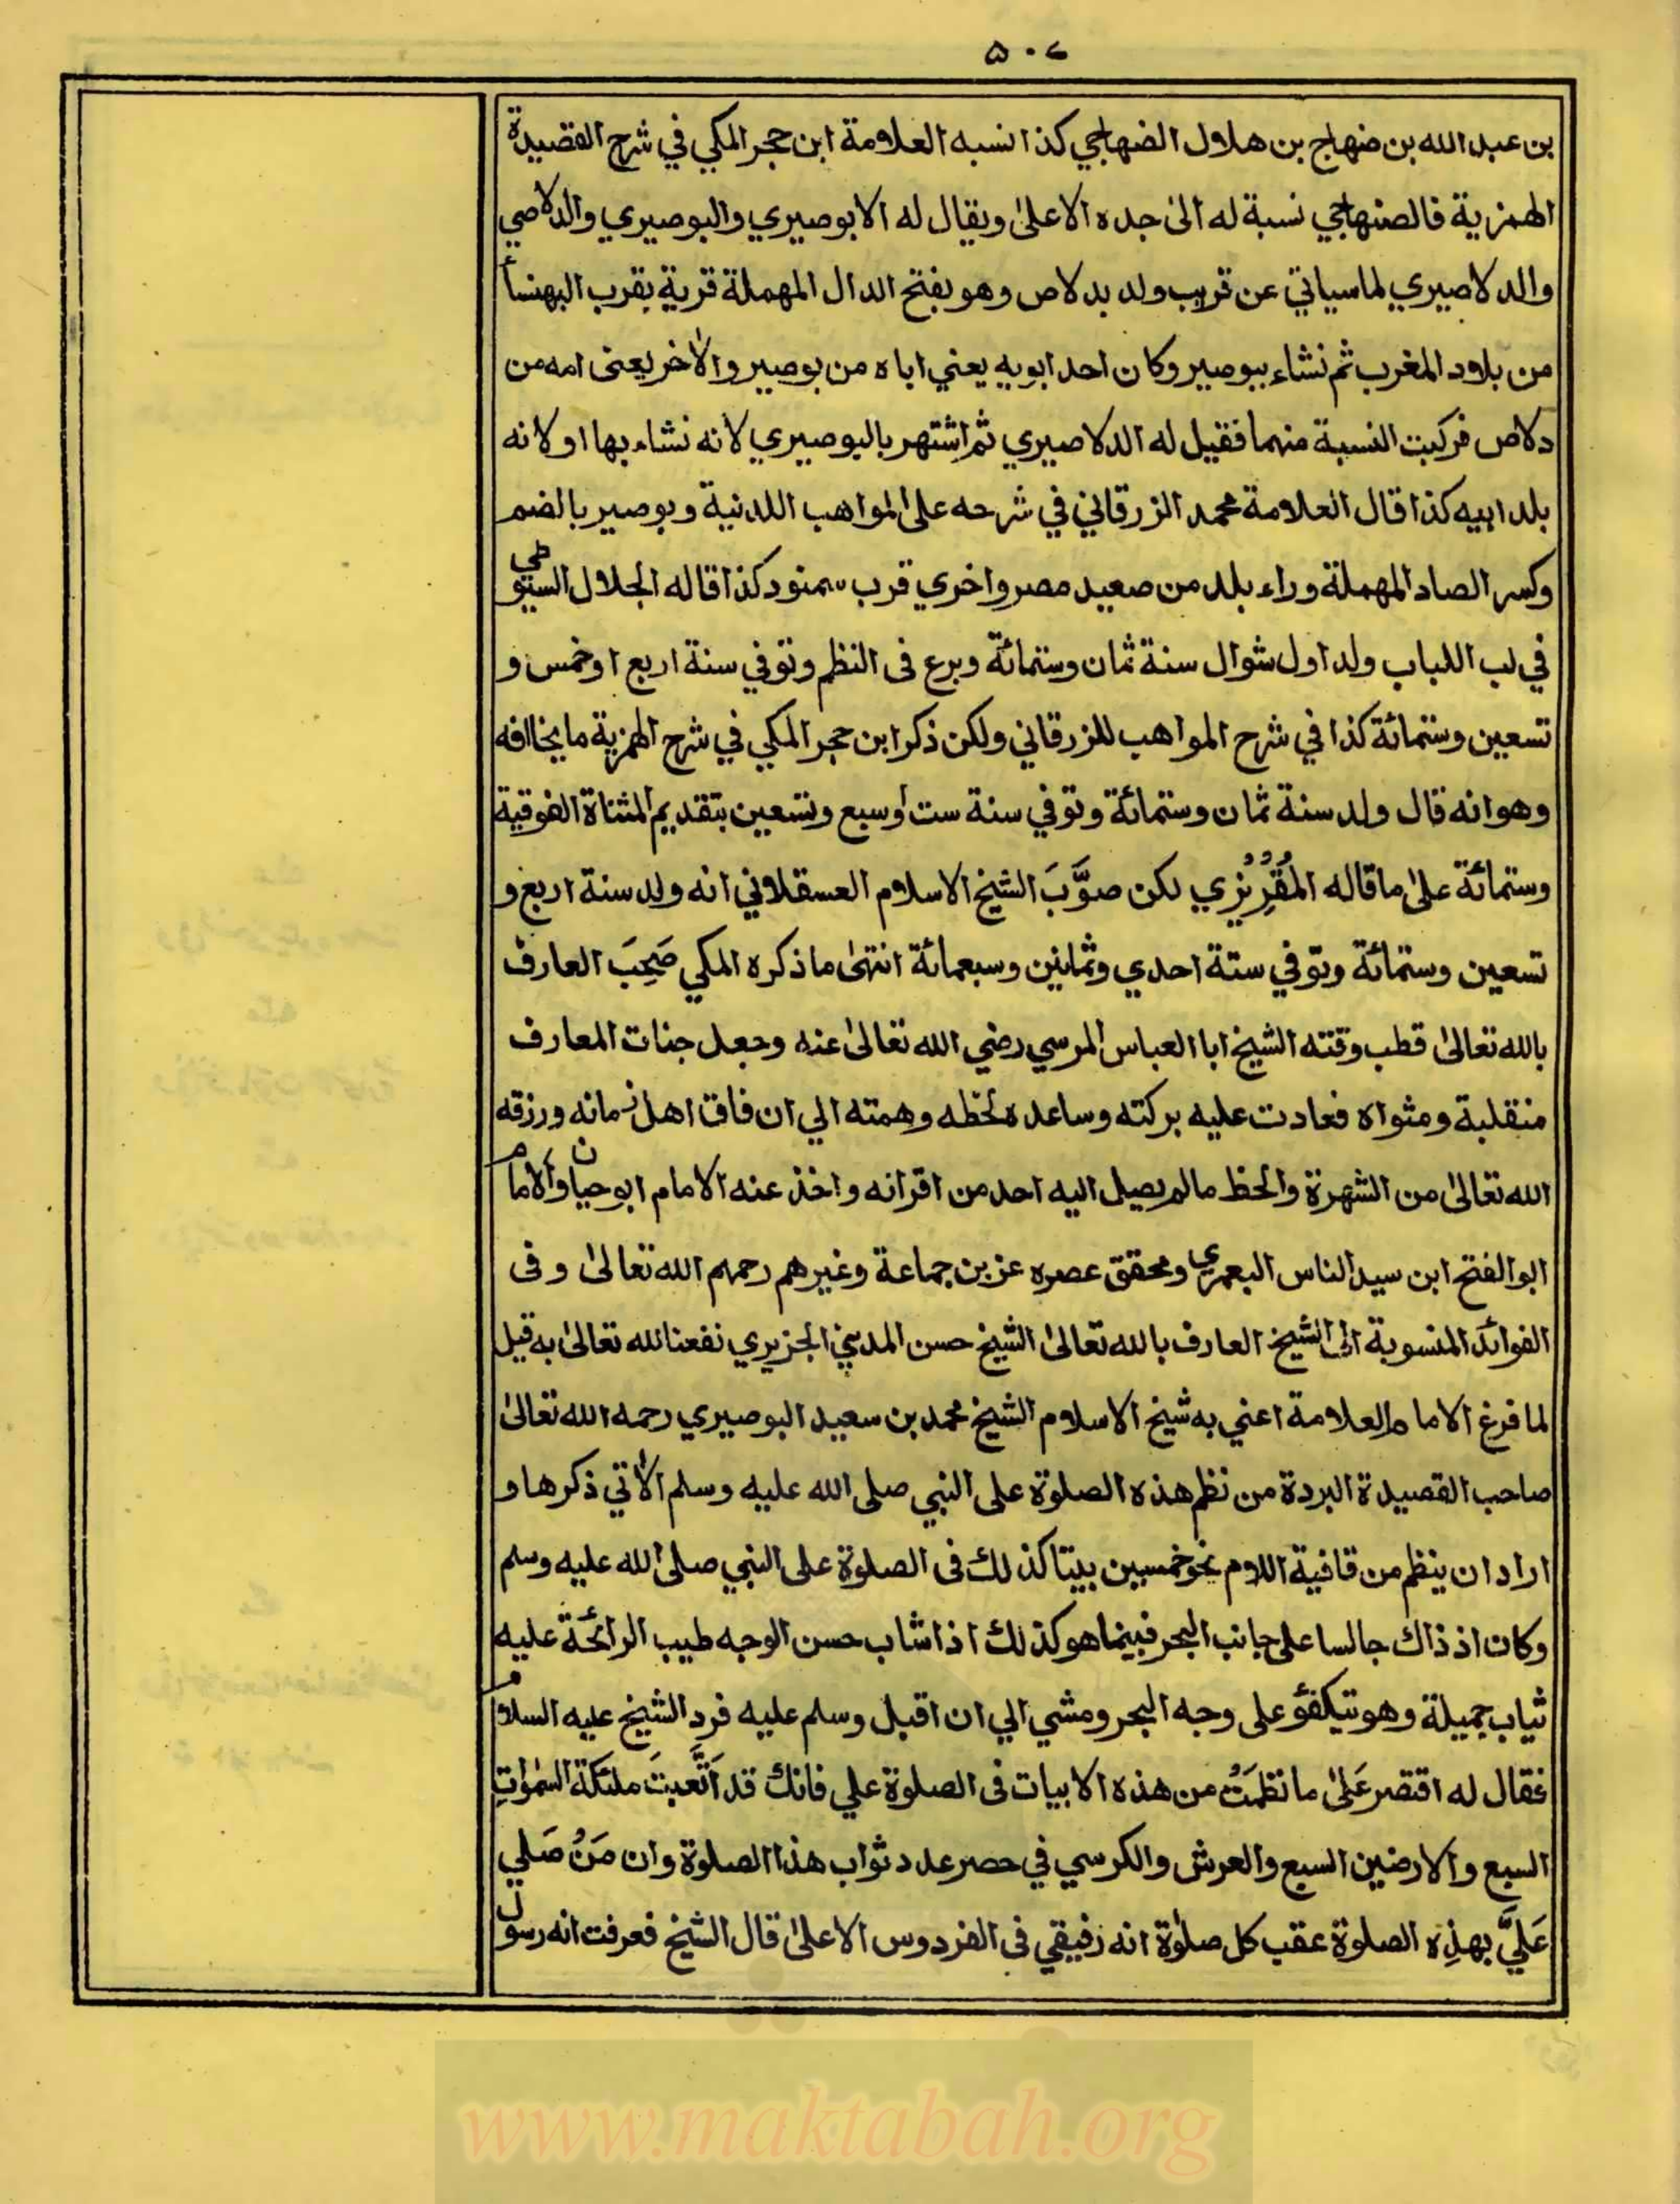 ٥٠٤
بن عبد الله بن ضنهاج بن هلال الضهاجي كذا نسبه العلامة ابن حجر المكي في شرح القصيدة
الهمزية فالصنهاجي نسبة له الى جده الاعلى ويقال له الابوصيري والبوصيري والدلاصي
والدلاصيري لما سياتي عن قريب ولد بدلاص وهو بفتح الدال المهملة قرية بقرب البهنسا
من بلاد المغرب ثم نشاء ببوصير وكان احد ابويه يعني اباه من بوصير والاخر يعنى امه من
دلاص فركبت النسبة منهما فقيل له الدلاصيري ثم اشتهر بالبوصيري لانه نشاء بها او لانه
بلد ابيه كذا قال العلامة محمد الزرقاني في شرحه على المواهب اللدنية وبوصير بالضم
وكسر الصاد المهملة وراء بلد من صعيد مصر واخري قرب سمنود كذا قاله الجلال السيوطي
في لب اللباب ولد اول شوال سنة ثمان وستمائة وبرع فى النظم وتوفي سنة اربع او خمس و
تسعين وستمائة كذا في شرح المواهب للزرقاني ولكن ذكر ابن حجر المكي في شرح الهمزية ما يخالفه
وهو انه قال ولد سنة ثمان وستمائة وتوفي سنة ست أوسبع وتسعين بتقديم المثناة الفوقية
وستمائة على ما قاله المقريزي لكن صوَّبَ الشيخ الاسلام العسقلاني انه ولد سنة اربع و
تسعين وستمائة وتوفي ستة احدي وثمانين وسبعمائة انتهى ما ذكره المكي صَحِبَ العارف
بالله تعالى قطب وقته الشيخ ابا العباس المرسي رضي الله تعالى عنه وجعل جنات المعارف
منقلبة ومثواه فعادت عليه بركته وساعده لحظه وهمته الي ان فاق اهل زمانه ورزقه
الله تعالى من الشهرة والحظ مالم يصل اليه احد من اقرانه واخذ عنه الامام ابو حيان والامام
ابو الفتح ابن سيد الناس اليعمري ومحقق عصره عز بن جماعة وغيرهم رحمهم الله تعالى وفى
الفوائد المنسوبة الى الشيخ العارف بالله تعالى الشيخ حسن المديني الجزيري نفعنا لله تعالى به قيل
لما فرغ الامام العلامة اعني به شيخ الاسلام الشيخ محمد بن سعيد البوصيري رحمه الله تعالى
صاحب القصيدة البردة من نظم هذه الصلوة على النبي صلى الله عليه وسلم الاتي ذكرها و
اراد ان ينظم من قافية اللام نحو خمسين بيتا كذلك فى الصلوة على النبي صلى الله عليه وسلم
وكان اذ ذاك جالسا على جانب البحر فبينما هو كذلك اذا شاب حسن الوجه طيب الرائحة عليه
ثياب جميلة وهو تيكفؤ على وجه البحر ومشي الي ان اقبل وسلم عليه فرد الشيخ عليه السلام
فقال له اقتصر عَلىٰ ما نظمتَ من هذه الابيات فى الصلوة علي فانك قد اَتَّعبتَ ملئكة السمٰوٰتِ
السبع والارضين السبع والعرش والكرسي في حصر عدد ثواب هذا الصلوة وان مَنْ صَلي
عَليَّ بهذِه الصلوة عقب كل صلوٰة انه رفيقي فى الفردوس الاعلىٰ قال الشيخ فعرفت انه رسول
www.maktabah.org